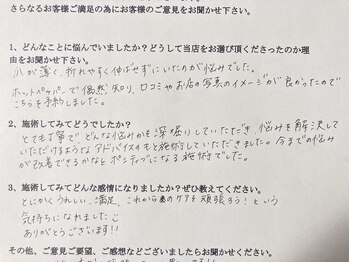 さらなるお客様ご満足の為にお客様のご意見をお聞かせ下さい。
1、どんなことに悩んでいましたか？どうして当店をお選び頂くださったのか理
由をお聞かせ下さい。
爪が薄く、折れやすく伸ばせずにいたのが悩みでした。
ホットペッパーで偶然知り、口コミやお店の写真のイメージが良かったので
こちらを予約しました。
2、施術してみてどうでしたか？
とても丁寧で どんな悩みかを深堀りしていただき、悩みを解決して
いただけるようなアドバイスのもと施術していただきました。今までの悩み
が改善できるかなと ポジティブになる施術でした。
3、施術してみてどんな感情になりましたか？ぜひ教えてください。
とにかくうれしい、満足、これから のケアを頑張ろう！という
気持ちになれました
ありがとうございます!!
その他、ご意見ご要望、ご感想などございましたらお聞かせください。